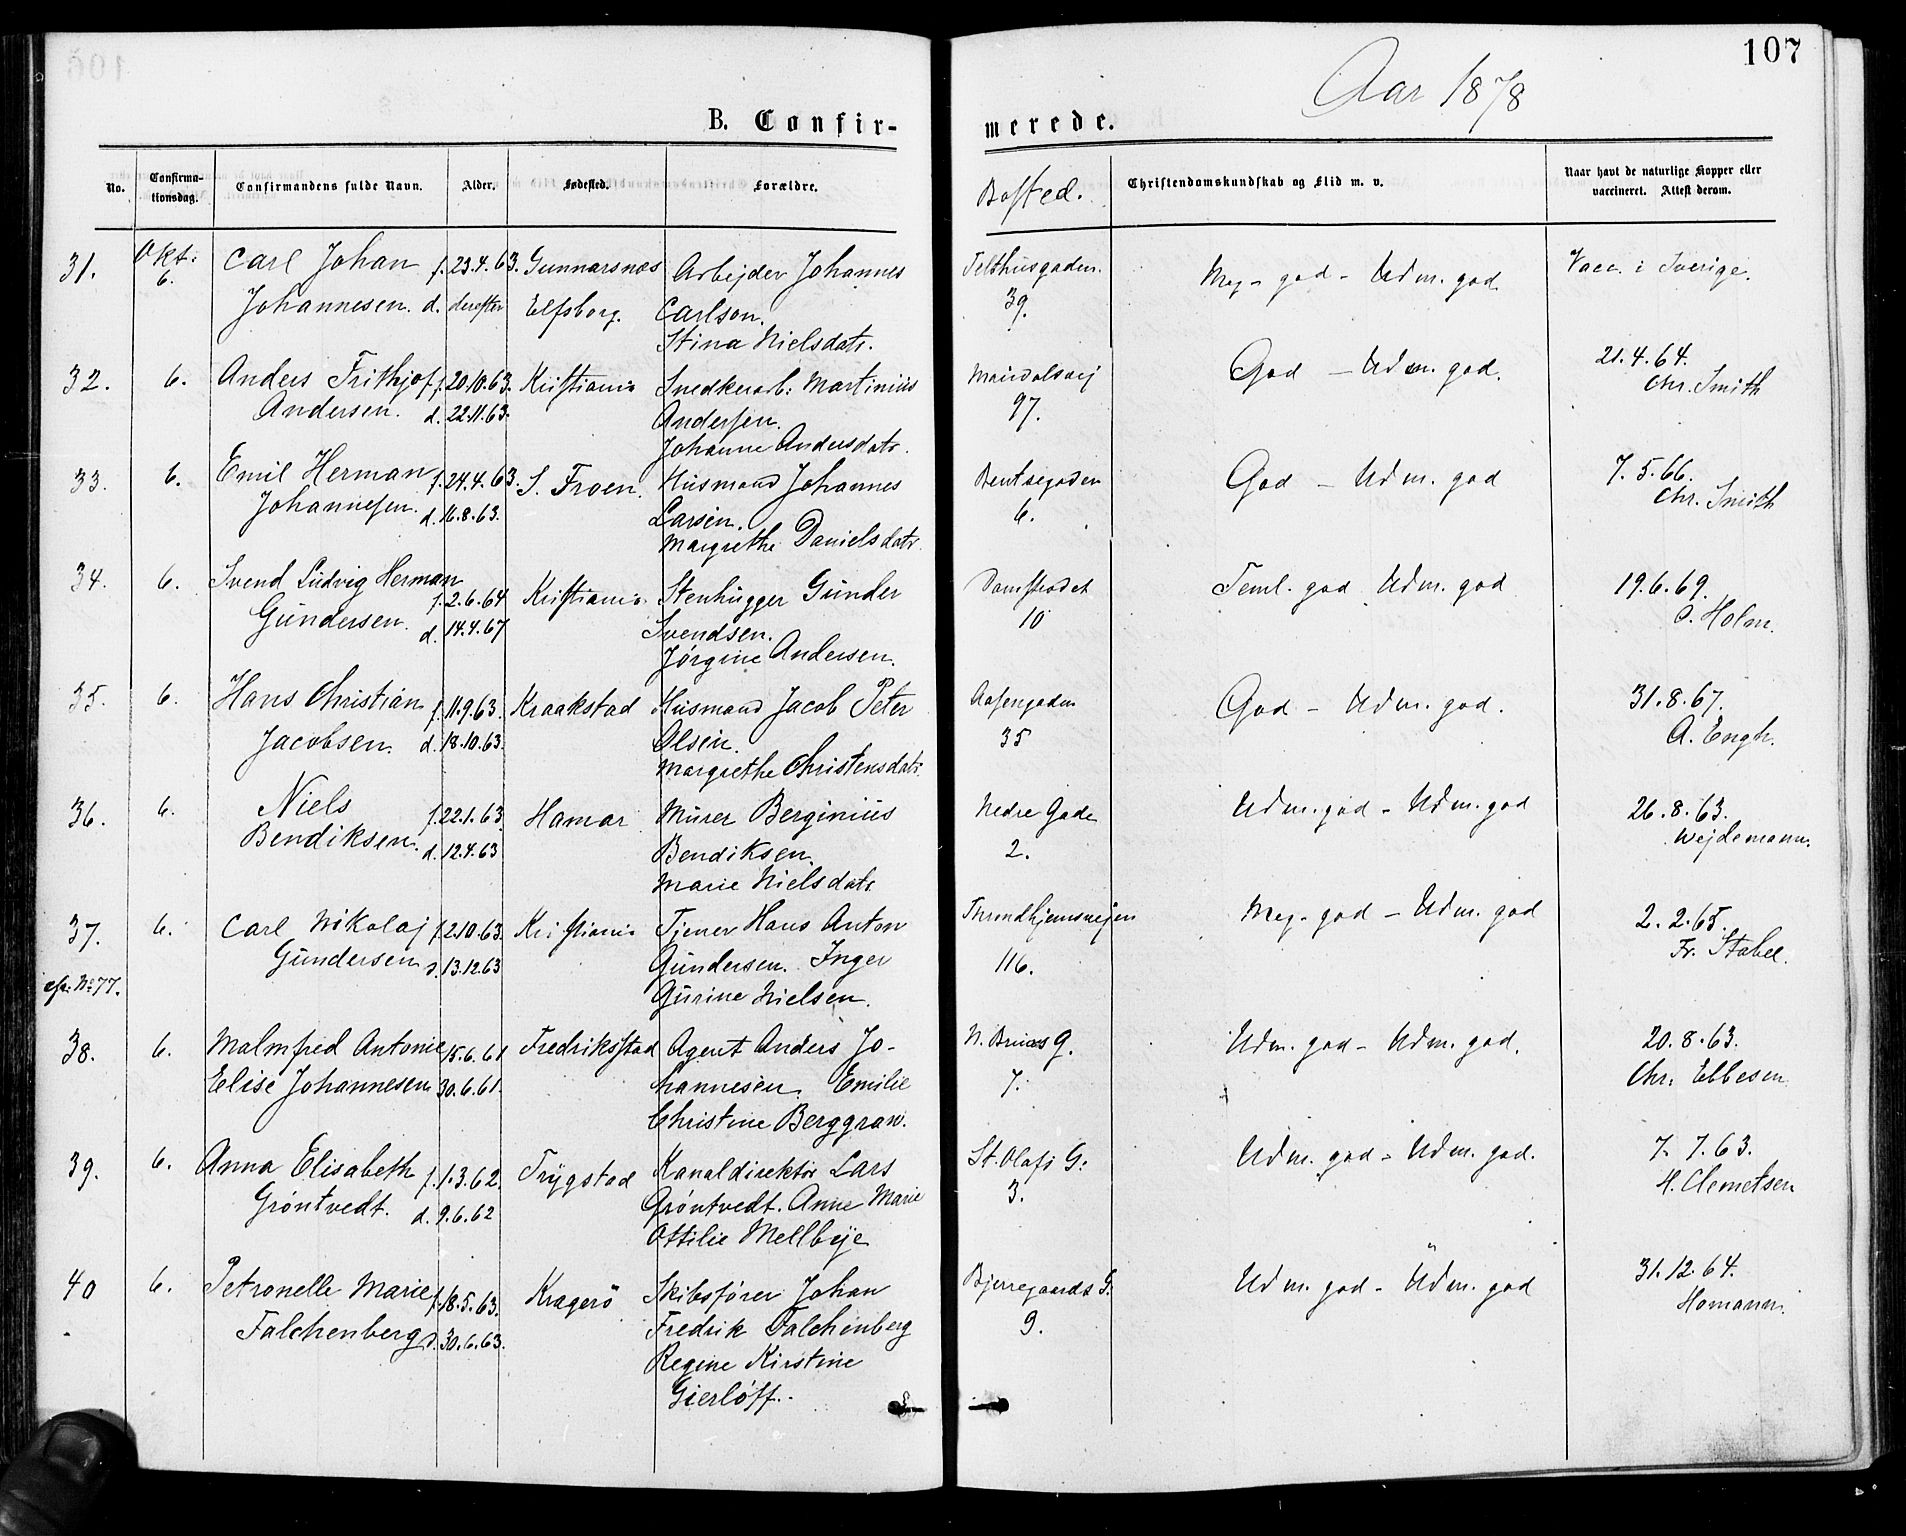 107
Aar 1878
B. Confir-
merede.
No.
Confirma-
tionsdag.
Confirmandens fulde Navn.
Alder.
Fødested.
Forældre.
Bosted.
Christendomskundskab og Flid m. v.
Naar havt de naturlige Kopper eller
vaccineret. Attest derom.
31. Okt. Carl Johan f. 23.4.63. Gunnarsnæs Arbejder Johannes Telthusgaden. Meg. god - Udm. god Vacc. i Sverige.
6. Johannesen. d. derefter Elfsborg. Carlson. 39.
Stina Nielsdatr.
32. 6. Anders Frithjof f. 20.10.63. Kristiania Snedkerarb: Martinius Maridalsvej God - Udm. god. 21.4.64.
Andersen. d. 22.11.63. Andersen. 97. Chr. Smith
Johanne Andersdatr.
33. 6. Emil Herman f. 24.4.63. S. Froen. Husmand Johannes Bentsegaden God - Udm. god 7.5.66.
Johannesen. d. 16.8.63. Larsen. 6. Chr. Smith
Margrethe Danielsdatr.
34. 6. Svend Ludvig Herman f. 2.6.64 Kristiania Stenhugger Gunder Damstredet Teml. god Udm. god 19.6.69.
Gundersen. d. 14.4.67 Svendsen. 10 C. Holm.
Jørgine Andersen.
35. 6. Hans Christian f. 11.9.63. Kraakstad Husmand Jacob Peter Aasengaden God - Udm. god. 31.8.67.
Jacobsen. d. 18.10.63. Olsen. 35 A. Engh.
Margrethe Christensdatr.
36. 6. Niels f. 22.1.63. Hamar Murer Berginius Nedre Gade Udm. god - Udm. god 26.8.63.
Bendiksen. d. 12.4.63 Bendiksen. 2. Wejdemann.
Marie Nielsdatr.
37. 6. Carl Nikolaj f. 2.10.63. Kristiania Tjener Hans Anton Throndhjemsvejen Meg. god - Udm. god 2.2.65.
Gundersen d. 13.12.63 Gundersen. Inger 116. Fr. Stabel.
cfr. No 77. Gurine Nielsen.
38. 6. Malmfred Antonie 15.6.61 Fredriksstad Agent Anders Jo- N. Bruns G. Udm. god - Udm. god. 20.8.63.
Elise Johannesen 30.6.61. hannesen. Emilie 7. Chr. Ebbesen
Christine Berggrav.
39. 6. Anna Elisabeth f. 1.3.62. Trygstad Kanaldirektør Lars St. Olafs G. Udm. god - Udm. god. 7.7.63.
Grøntvedt. d. 9.6.62 Grøntvedt. Anne Marie 3. H. Clemetsen
Ottilie Mellbye
40 6. Petronelle Marie f. 18.5.63. Kragerö Skibsfører Johan Bjerregaards G. Udm. god - Udm. god 31.12.64.
Falchenberg d. 30.6.63. Fredrik Falchenberg 9. Homann.
Regine Kirstine
Gierløff.